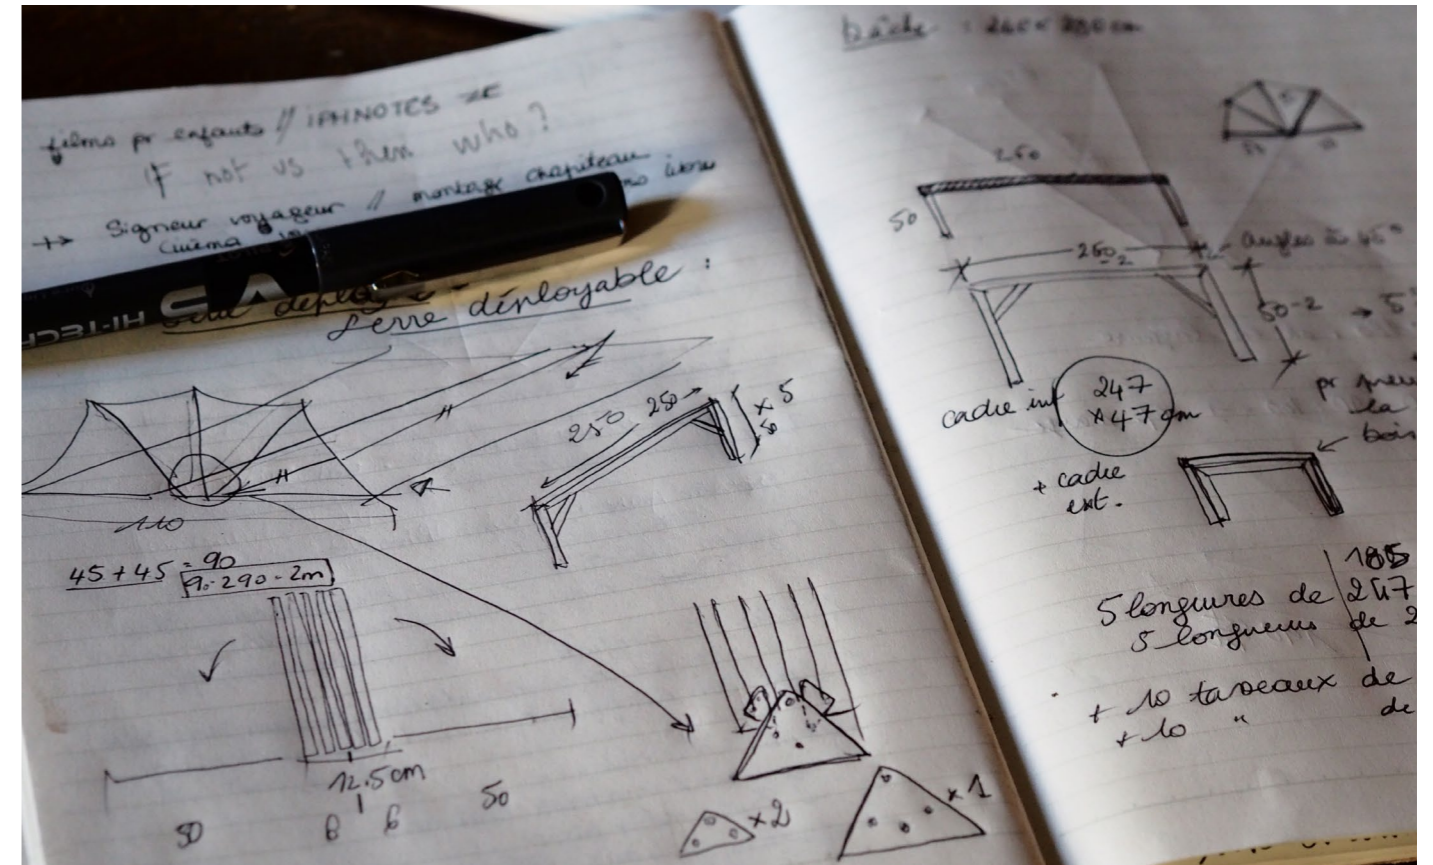 films pr enfants // IPHNOTES ZE
IF not us then who?
++ Signeur voyageur // montage chapiteau
cinéma
HI-TECH
V5
Serre déployable :
250 250 × 5
110
45+45 = 90
290 - 2m
12.5cm
50 50
× 2
× 1
Bâche :
250
50
250 angles à 45°
50-2 → 5
cadre inf 247
× 47 cm
+ cadre
ext.
la
bois
185
5 longueurs de 247
5 longueurs de 2
+ 10 tasseaux de
+ 10 " de